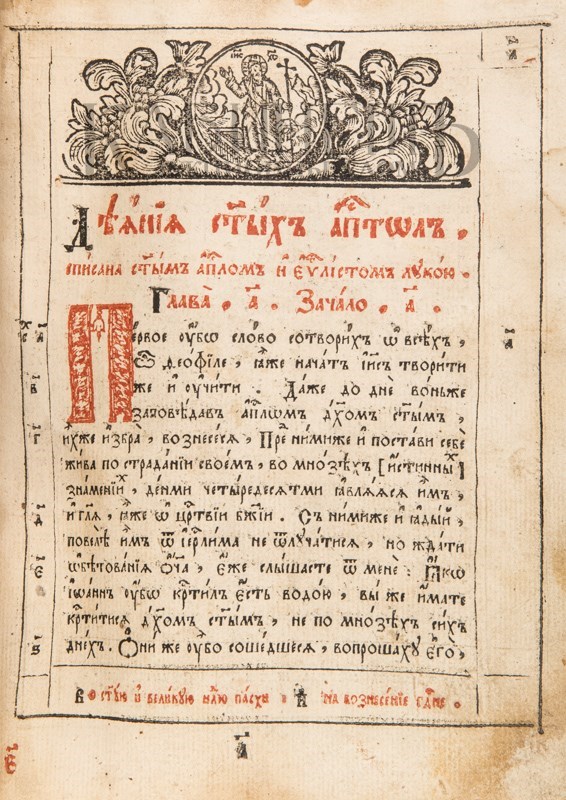 І҃ИС Х҃С
Дѣѧ҄нїѧ ст҃ы́хъ а҆п҃то́лъ .
спи́сана ст҃ы́мъ а҆п҃ломъ и҆ е҆ѵ҃лі́стомъ лꙋко́ю .
Глава̀ . а҃ . Зача́ло . а҃ .
Пе́рвое ᲂу҆́бѡ сло́во сотвори́хъ ѡ҆ всѣ́хъ ,
ѽ ѳео́фїле , ꙗ҆̀же нача́тъ і҆и҃съ твори́ти
же и҆ ᲂу҆чи́ти . Да́же до днѐ во́ньже
заповѣ́давъ а҆п҃лѡмъ д҃хомъ ст҃ы́мъ ,
и҆́хже и҆збра̀ , вознесе́сѧ , Пре ни́миже и҆ поста́ви себѐ
жи́ва по страда́нїи свое́мъ , во мно́зѣхъ [ и҆́стинныⷯ ]
зна́менїиⷯ , де́нми четы́редесѧтми ꙗ҆влѧ́ѧсѧ и҆̀мъ ,
и҆ гл҃ѧ , ꙗ҆̀же ѡ҆ цр҃твїи бж҃їи . Съ ни́миже и҆ ꙗ҆ды́й ,
повелѣ̀ и҆̀мъ ѿ і҆ер҃ли́ма не ѿлꙋча́тисѧ , но жда́ти
ѡ҆бѣтова́нїѧ ѻ҆́ч҃а , є҆́же слы́шасте ѿ менѐ : Ꙗ҆́кѡ
і҆ѡа́ннъ ᲂу҆́бѡ кр҃ти́лъ є҆́сть водо́ю , вы́ же и҆́мате
кр҃ти́тисѧ д҃хомъ ст҃ы́мъ , не по мно́зѣхъ си́хъ
дне́хъ . Ѻ҆ни́ же ᲂу҆́бо соше́дшесѧ , вопроша́хꙋ є҆го̀ ,
Во ст҃ꙋ́ю и҆ вели́кꙋю нл҃ю па́схи . И҆ на вознесе́нїе г҃дне .